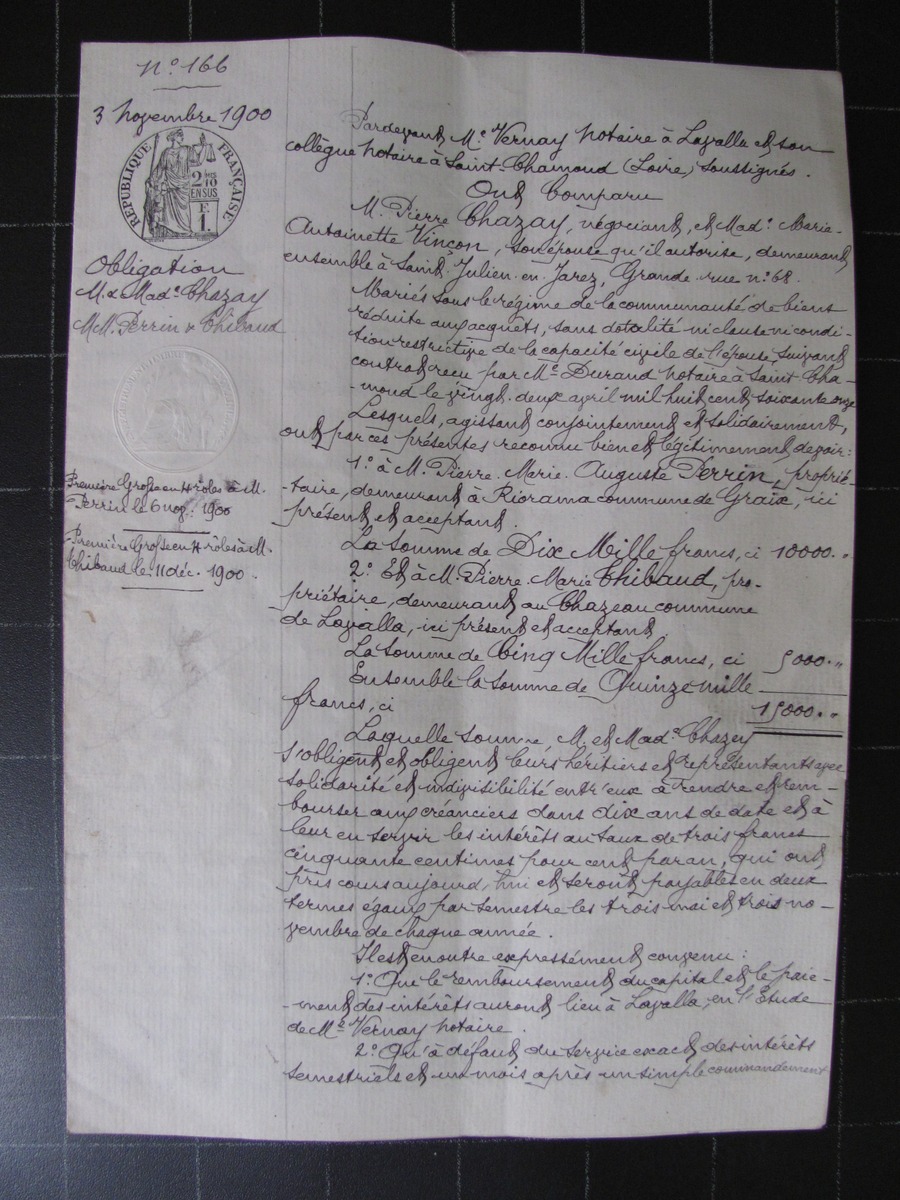 N° 166
3 Novembre 1900
RÉPUBLIQUE FRANÇAISE
2/10 EN SUS
F 1.
Obligation
M. & Mad.e Chazay
à MM. Perrin & Thibaud
Première Grosse en 4 rôles à M.
Perrin le 6 nov. 1900
Première Grosse en 4 rôles à M.
Thibaud le 11 déc. 1900.
Pardevant Me Vernay Notaire à Lavalla et son
collègue Notaire à Saint-Chamond (Loire) soussignés.
Ont Comparu
M. Pierre Chazay, négociant, et Mad.e Marie-
Antoinette Vinçon, son épouse qu'il autorise, demeurant
ensemble à Saint-Julien-en-Jarez, Grande-rue n° 68.
Mariés sous le régime de la communauté de biens
réduite aux acquêts, sans dotalité ni clause ni condi-
tion restrictive de la capacité civile de l'épouse suivant
contrat reçu par Me Durand Notaire à Saint-Cha-
-mond le vingt-deux avril mil huit cent soixante onze
Lesquels, agissant conjointement et solidairement,
ont par ces présentes reconnu bien et légitimement devoir:
1° à M. Pierre-Marie-Auguste Perrin, proprié-
-taire, demeurant à Riorama commune de Graix, ici
présent et acceptant.
La somme de Dix Mille francs, ci 10000. "
2° Et à M. Pierre-Marie Thibaud, pro-
priétaire, demeurant au Chazeau commune
de Lavalla, ici présent et acceptant
La somme de Cinq Mille francs, ci 5000. "
Ensemble la somme de Quinze mille
francs, ci 15000. "
Laquelle somme M. et Mad.e Chazey
s'obligent et obligent leurs héritiers et représentants avec
solidarité et indivisibilité entr'eux à rendre et rem-
bourser aux créanciers dans dix ans de date et à
leur en servir les intérêts au taux de trois francs
cinquante centimes pour cent par an, qui ont
pris cours aujourd'hui et seront payables en deux
termes égaux par semestre les trois mai et trois no-
vembre de chaque année.
Il est en outre expressément convenu:
1° Que le remboursement du capital et le paie-
-ment des intérêts auront lieu à Lavalla, en l'Etude
de Me Vernay Notaire.
2° Qu'à défaut du service exact des intérêts
semestriels et un mois après un simple commandement